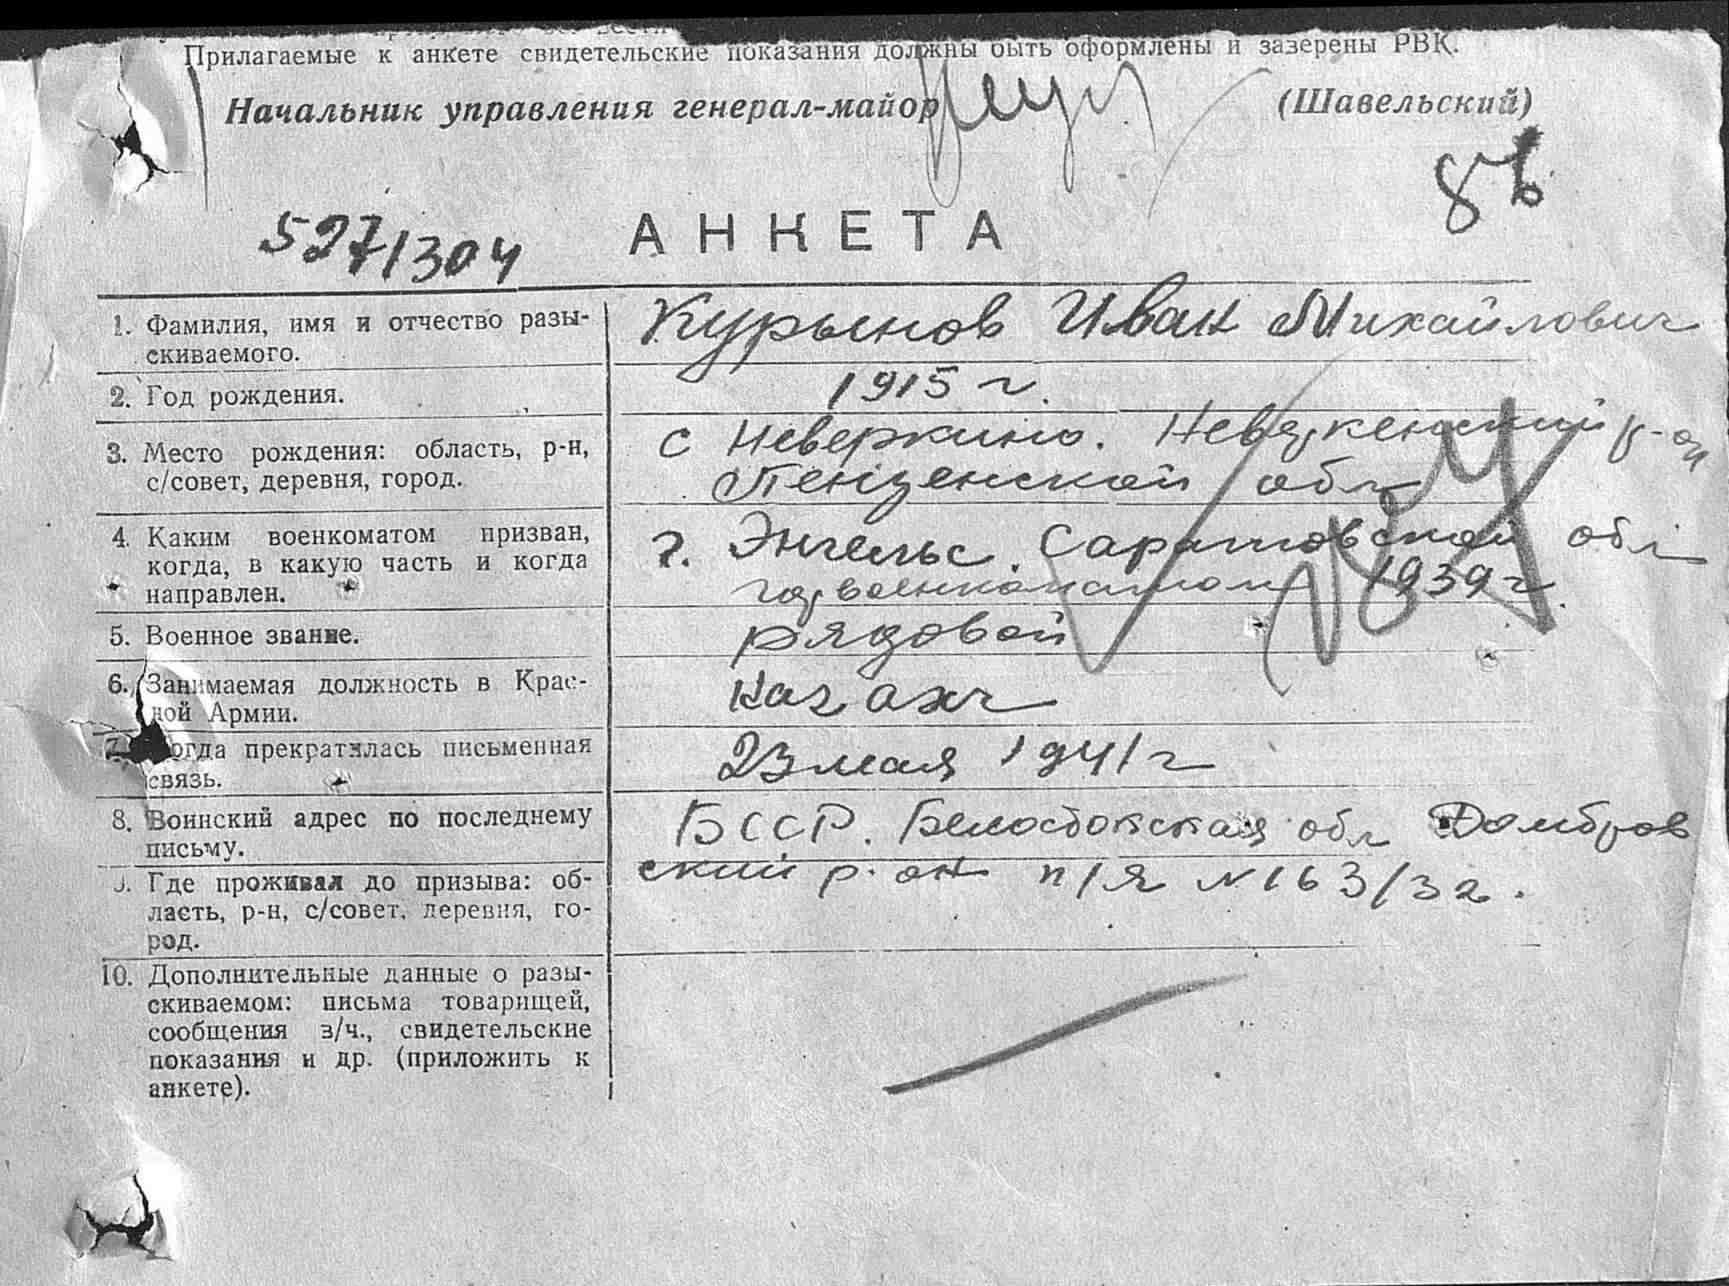 Прилагаемые к анкете свидетельские показания должны быть оформлены и заверены РВК.
Начальник управления генерал-майор (Шавельский)
86
527/304
АНКЕТА
1. Фамилия, имя и отчество разы-
скиваемого.
Курынов Иван Михайлович
2. Год рождения.
1915 г.
3. Место рождения: область, р-н,
с/совет, деревня, город.
с Неверкино. р-он
Пензенской обл
4. Каким военкоматом призван,
когда, в какую часть и когда
направлен.
г. Энгельс. Саратовской обл
горвоенкоматом 1939 г.
5. Военное звание.
рядовой
6. Занимаемая должность в Крас-
ной Армии.
7. Когда прекратилась письменная
связь.
23 мая 1941 г
8. Воинский адрес по последнему
письму.
БССР. Белостокская обл Домбров
ский р-он п/я №163/32.
9. Где проживал до призыва: об-
ласть, р-н, с/совет, деревня, го-
род.
10. Дополнительные данные о разы-
скиваемом: письма товарищей,
сообщения з/ч., свидетельские
показания и др. (приложить к
анкете).